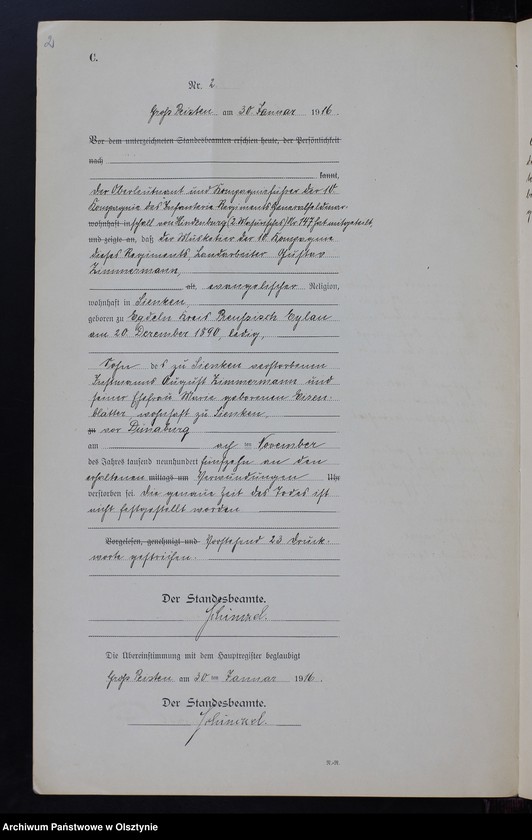 2
C.
Nr. 2
Groß Peisten am 30 Januar 1916.
Vor dem unterzeichneten Standesbeamten erschien heute, der Persönlichkeit
nach
kannt,
Der Oberleutnant und Kompagnieführer der 10.
Kompagnie des Infanterie-Regiments Generalfeldmar-
wohnhaft in schall von Hindenburg (2. Masurisches) Nr 147 hat mitgeteilt,
und zeigte an, daß der Musketier der 10. Kompagnie
dieses Regiments, Landarbeiter Gustav
Zimmermann,
alt, evangelischer Religion,
wohnhaft in Sienken,
geboren zu Kreis Preußisch Eylau
am 20 Dezember 1890, ledig,
Sohn des zu Sienken verstorbenen
Instmanns August Zimmermann und
seiner Ehefrau Marie geborenen Eisen-
blätter, wohnhaft zu Sienken,
zu vor Dünaburg
am November
des Jahres tausend neunhundert fünfzehn an den
erhaltenen mittags um Verwundungen Uhr
verstorben sei. Die genaue Zeit des Todes ist
nicht festgestellt worden
Vorgelesen, genehmigt und Vorstehend 23 Druck-
worte gestrichen.
Der Standesbeamte.
Schimzel.
Die Übereinstimmung mit dem Hauptregister beglaubigt
Groß Peisten am 30 ten Januar 1916.
Der Standesbeamte.
Schimzel.
R.-R.
Archiwum Państwowe w Olsztynie